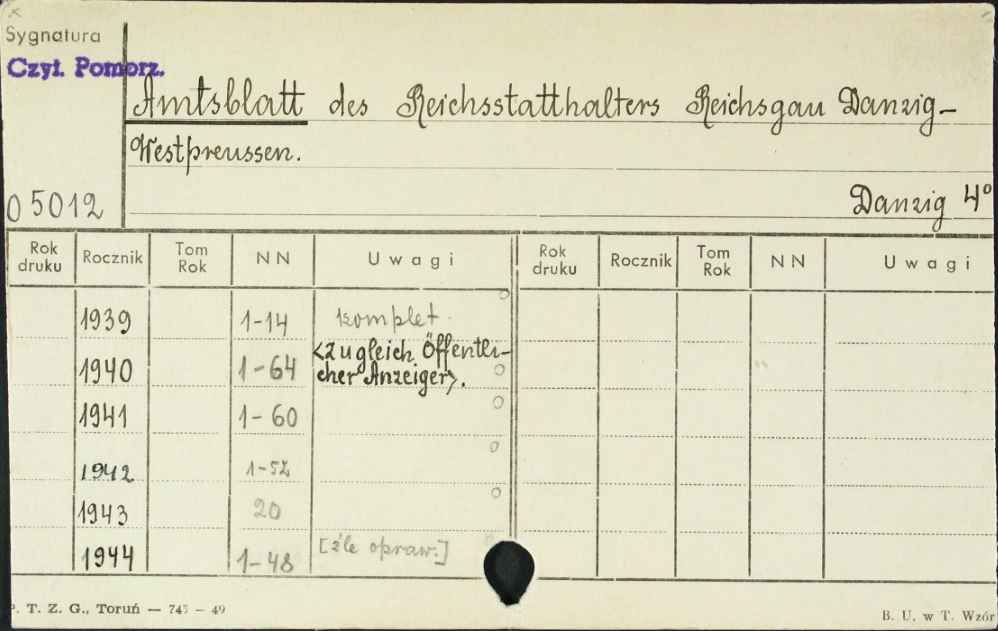 Sygnatura
Czyt. Pomorz.
Amtsblatt des Reichsstatthalters Reichsgau Danzig-
Westpreussen.
O 5012
Danzig 4°
Rok druku Rocznik Tom Rok NN Uwagi Rok druku Rocznik Tom Rok NN Uwagi
1939 1-14 komplet.
1940 1-64 <Zugleich Öffentli-
cher Anzeiger>.
1941 1-60
1942 1-52
1943 20
1944 1-48 [źle opraw.]
P. T. Z. G., Toruń — 745 — 49
B. U. w T. Wzór